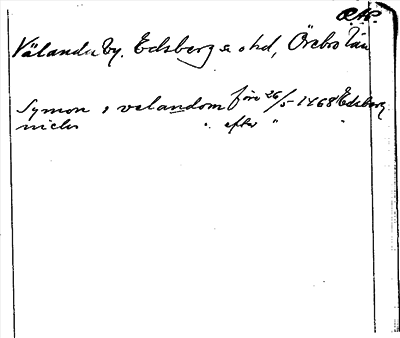 Välanda by. Edsberg s. o hd, Örebro län
Symon i valandom före 26/5 1468 Edsberg
niclis " efter " "